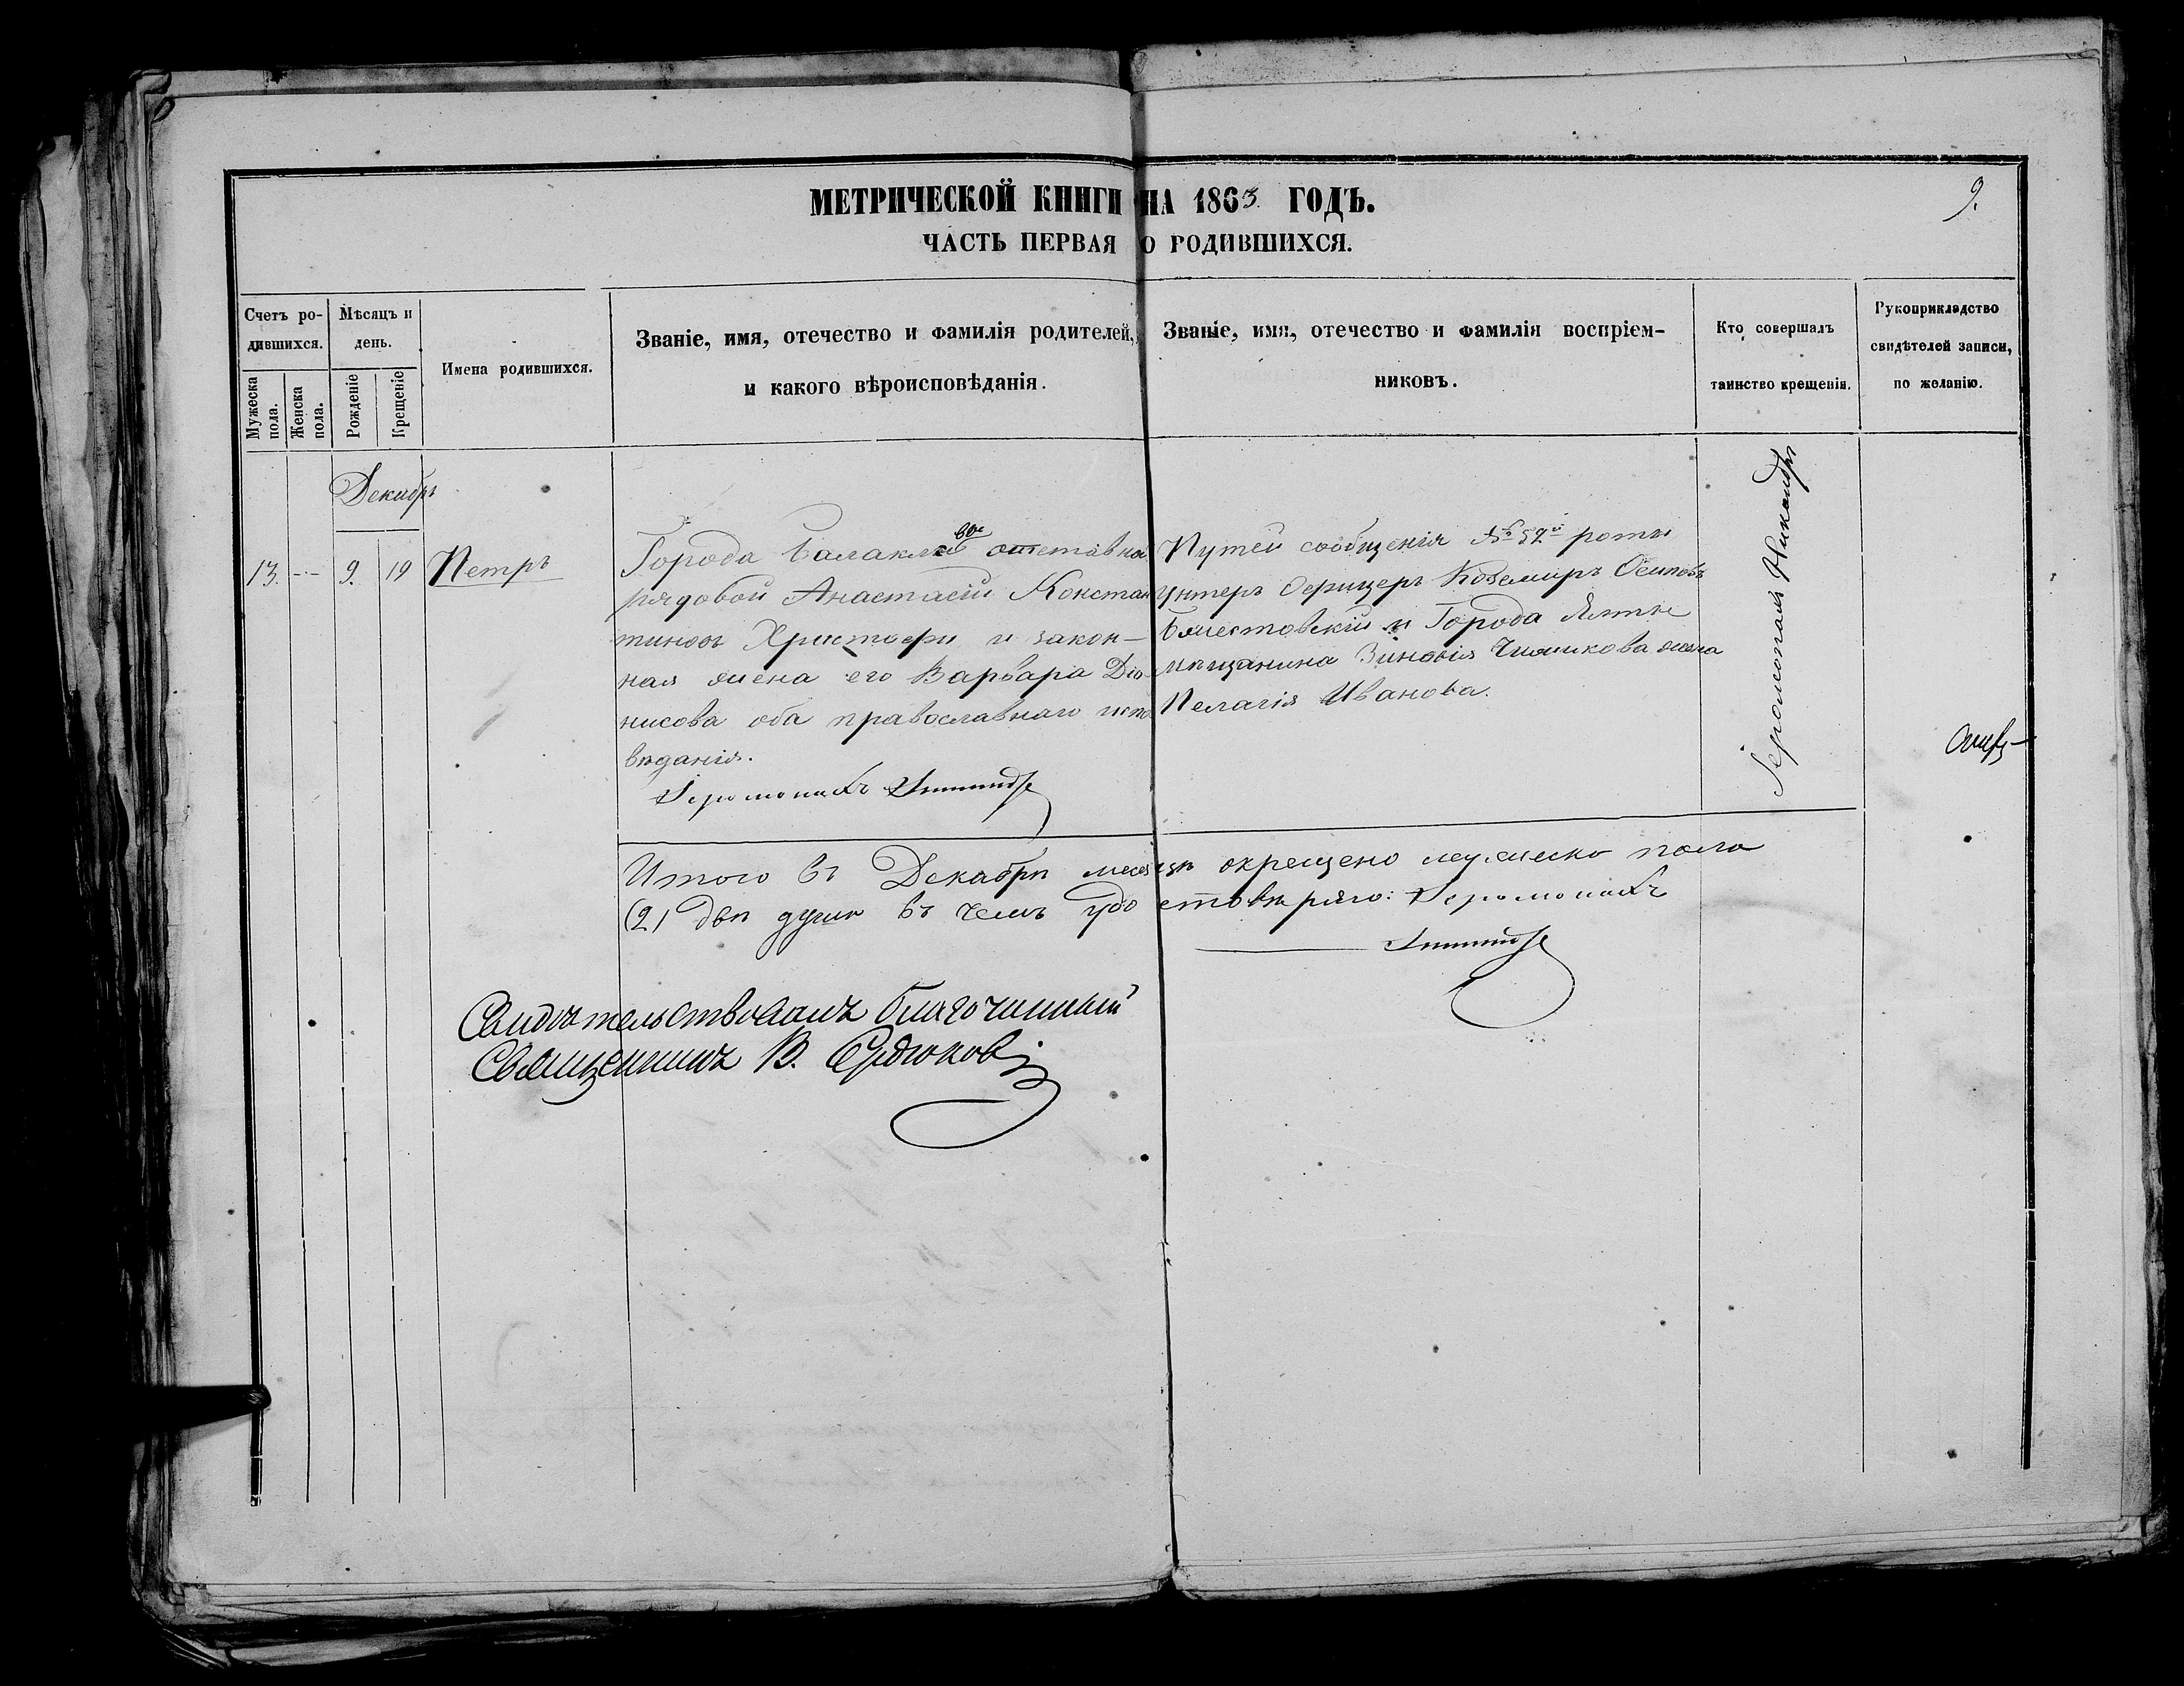 9.
МЕТРИЧЕСКОЙ КНИГИ НА 1863 ГОДЪ.
ЧАСТЬ ПЕРВАЯ О РОДИВШИХСЯ.
Счетъ ро-
дившихся.
Мужеска пола.
Женска пола.
Мѣсяцъ и
день.
Рожденіе
Крещеніе
Имена родившихся.
Званіе, имя, отечество и фамилія родителей,
и какого вѣроисповѣданія.
Званіе, имя, отечество и фамилія воспріем-
никовъ.
Кто совершалъ
таинство крещенія.
Рукоприкладство
свидѣтелей записи,
по желанію.
Декабрь
13. — 9. 19 Петръ
Города отставной
рядовой Анастасій Констан
тиновъ Христофи и закон-
ная жена его Варвара Діо
нисова оба православнаго испо
вѣданія.
Іеромонахъ
Путей сообщенія № 52й роты
унтеръ Офицеръ Осиповъ
и Города Ялты
мѣщанина Зиновія жена
Пелагія Иванова.
Іеромонахъ Никандръ
Итого въ Декабрѣ месяцѣ окрещено мужеско пола
(2) двѣ души въ чемъ удостовѣряю: Іеромонахъ
Свидѣтельствовалъ благочинный
Священникъ В.